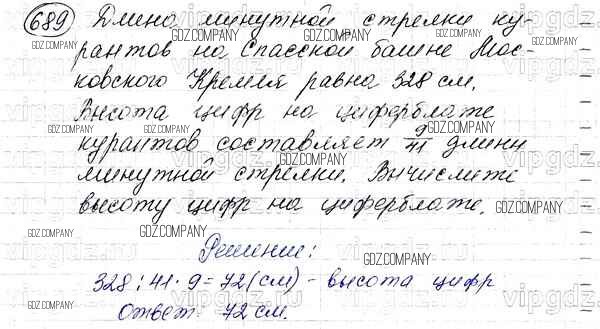 689 Длина минутной стрелки ку-
рантов на Спасской башне Мос-
ковского Кремля равна 328 см.
Высота цифр на циферблате
курантов составляет 9/41 длины
минутной стрелки. Вычислите
высоту цифр на циферблате.
Решение:
328 : 41 · 9 = 72 (см) - высота цифр
Ответ: 72 см.